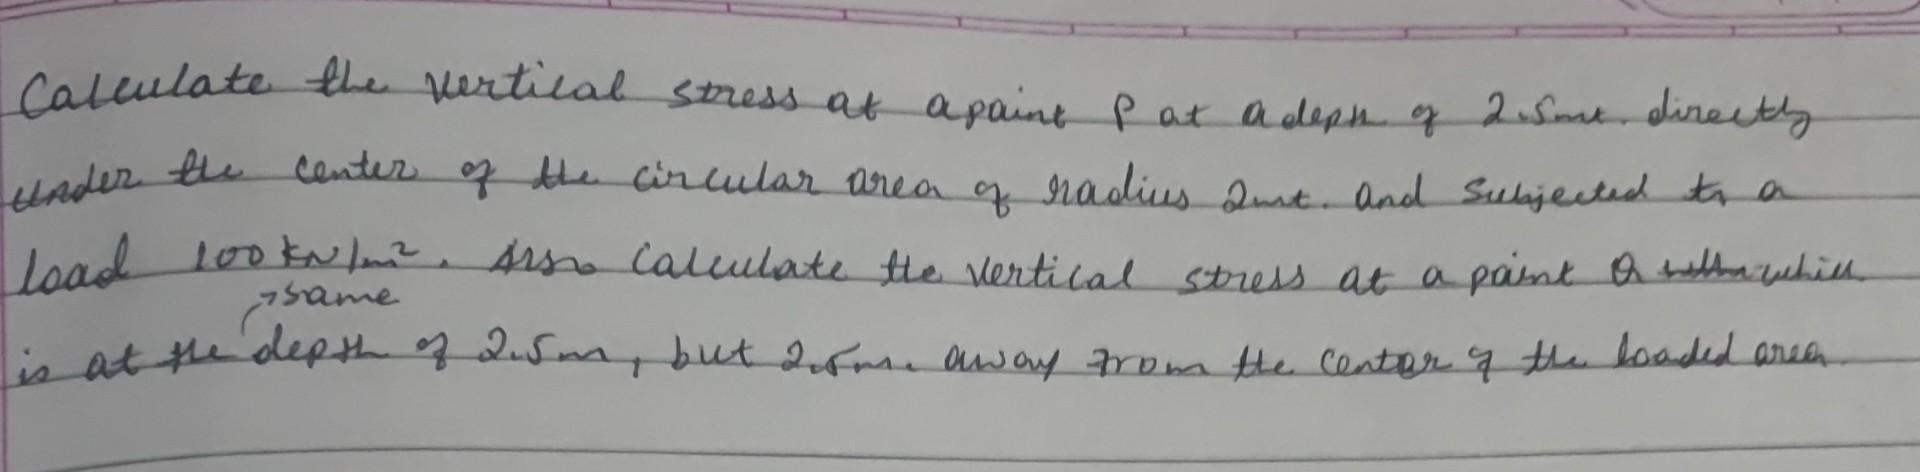 Calculate the vertical stress at a paint P at a depth of 2.5mt. directly
under the center of the circular area of radius 2mt. and subjected to a
load 100 kN/m². Also calculate the vertical stress at a paint Q which
→same
is at the depth of 2.5m, but 2.5m. away from the center of the loaded area